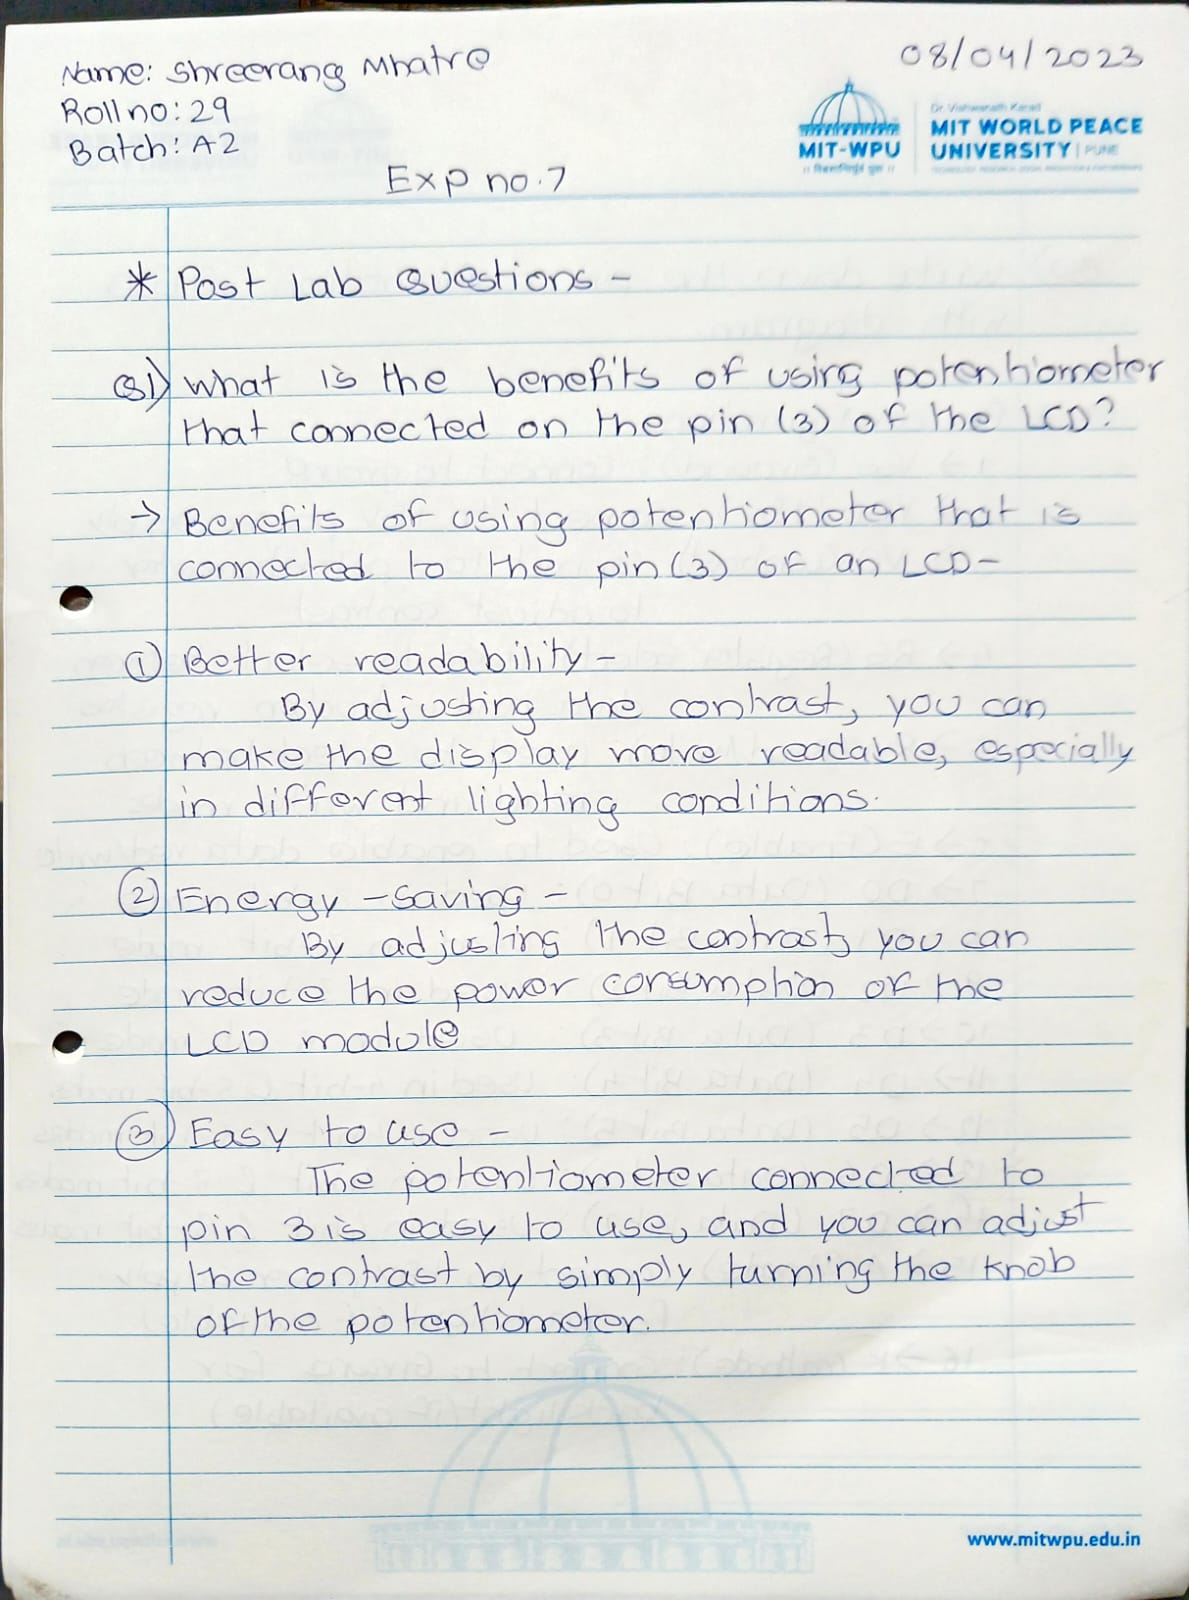 Name: Shreerang Mhatre
08/04/2023
Roll no: 29
Batch: A2
Dr. Vishwanath Karad
MIT WORLD PEACE
UNIVERSITY | PUNE
MIT-WPU
Exp no. 7
* Post Lab Questions -
Q1) What is the benefits of using potentiometer
that connected on the pin (3) of the LCD?
→ Benefits of using potentiometer that is
connected to the pin (3) of an LCD-
① Better readability -
By adjusting the contrast, you can
make the display more readable, especially
in different lighting conditions.
② Energy - saving -
By adjusting the contrast, you can
reduce the power consumption of the
LCD module
③ Easy to use -
The potentiometer connected to
pin 3 is easy to use, and you can adjust
the contrast by simply turning the knob
of the potentiometer.
www.mitwpu.edu.in